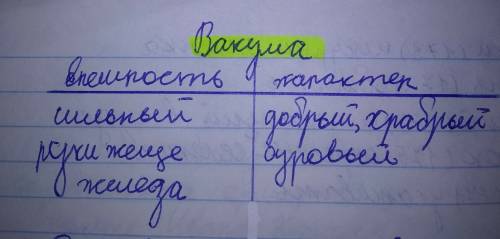 Вакума
внешность характер
сильный добрый, храбрый
руки жеще суровый
железа